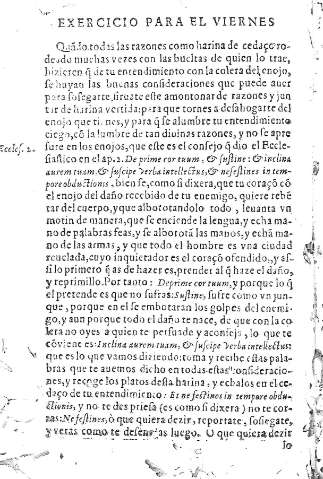 EXERCICIO PARA EL VIERNES
Quãdo todas las razones como harina de cedaço ro-
deada muchas vezes con las bueltas de quien lo trae,
hizieren q̃ de tu entendimiento con la colera del enojo,
se huyan las buenas consideraciones que puede auer
para sossegarte, siruate este amontonar de razones y jun
tar de harina vertida: para que tornes a desahogarte del
enojo que tienes, y para q̃ se alumbre tu entendimiento
ciego, cõ la lumbre de tan diuinas razones, y no se apre
sure en los enojos, que este es el consejo q̃ dio el Eccle-
Eccles. 2.
siastico en el ap. 2. De prime cor tuum, & sustine: & inclina
aurem tuam & suscipe verba intellectus, & ne festines in tem-
pore obductionis, bien se, como si dixera, que tu coraçõ cõ
el enojo del daño recebido de tu enemigo, quiere rebẽ
tar del cuerpo, y que alborotandolo todo, leuanta vn
motin de manera, que se enciende la lengua, y echa ma-
no de palabras feas, y se alborotã las manos, y echã ma-
no de las armas, y que todo el hombre es vna ciudad
reuelada, cuyo inquietador es el coraçõ ofendido, y as-
si lo primero q̃ as de hazer es, prender al q̃ haze el daño,
y reprimillo. Por tanto: Deprime cor tuum, y porque lo q̃
el pretende es que no sufras: Sustine, sufre como vn jun-
que, porque en el se embotaran los golpes del enemi-
go, y aun porque todo el daño te nace, de que con la co-
lera no oyes a quien te persuade y aconseja, lo que te
cõviene es: Inclina aurem tuam, & suscipe verba intellectus:
que es lo que vamos diziendo: toma y recibe estas pala-
bras que te auemos dicho en todas estas consideracio-
nes, y recoge los platos desta harina, y echalos en el ce-
daço de tu entendimiento: Et ne festines in tempore obdu-
ctionis, y no te des priesa (es como si dixera) no te cor-
ras: Ne festines, ò que quiera dezir, reportate, sossiegate,
y veras como te defiendas luego. O que quiera dezir
lo